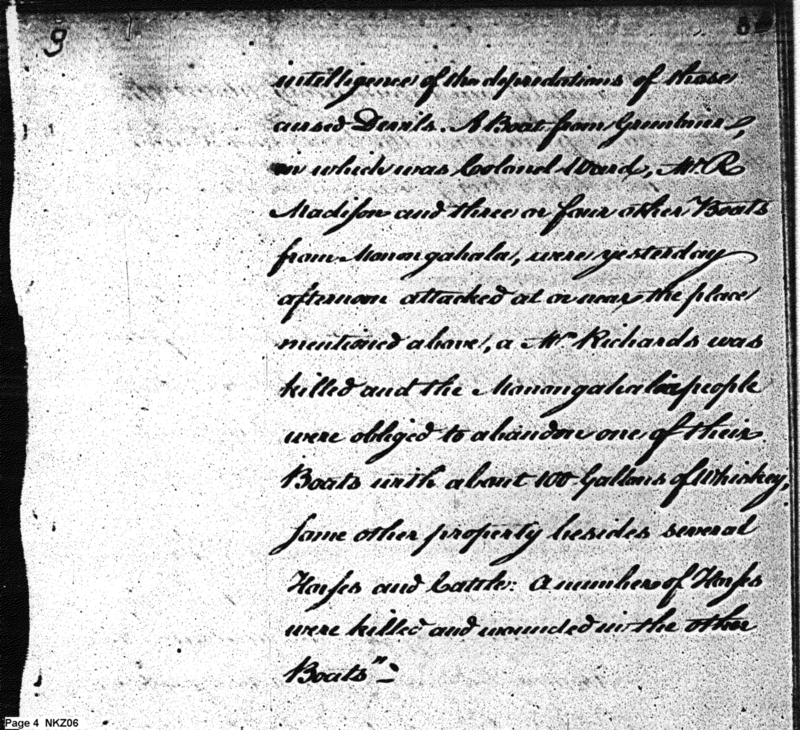 9
intelligence of the depredations of those
cursed Devils. A Boat from Greenbrier,
in which was Colonel Ward, Mr. R
Madison and three or four other Boats
from Monongahala, were yesterday
afternoon attacked at or near the place
mentioned above, a Mr Richards was
killed and the Monongahala people
were obliged to abandon one of their
Boats with about 100 Gallons of Whiskey,
some other property besides several
Horses and Cattle: A number of Horses
were killed and wounded in the other
Boats"-
Page 4 NKZ06